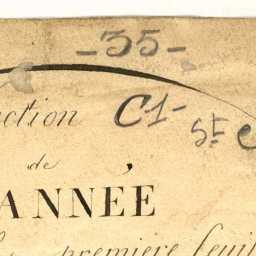 -35-
ction C1-
St C
de
ANNÉE
première feuil